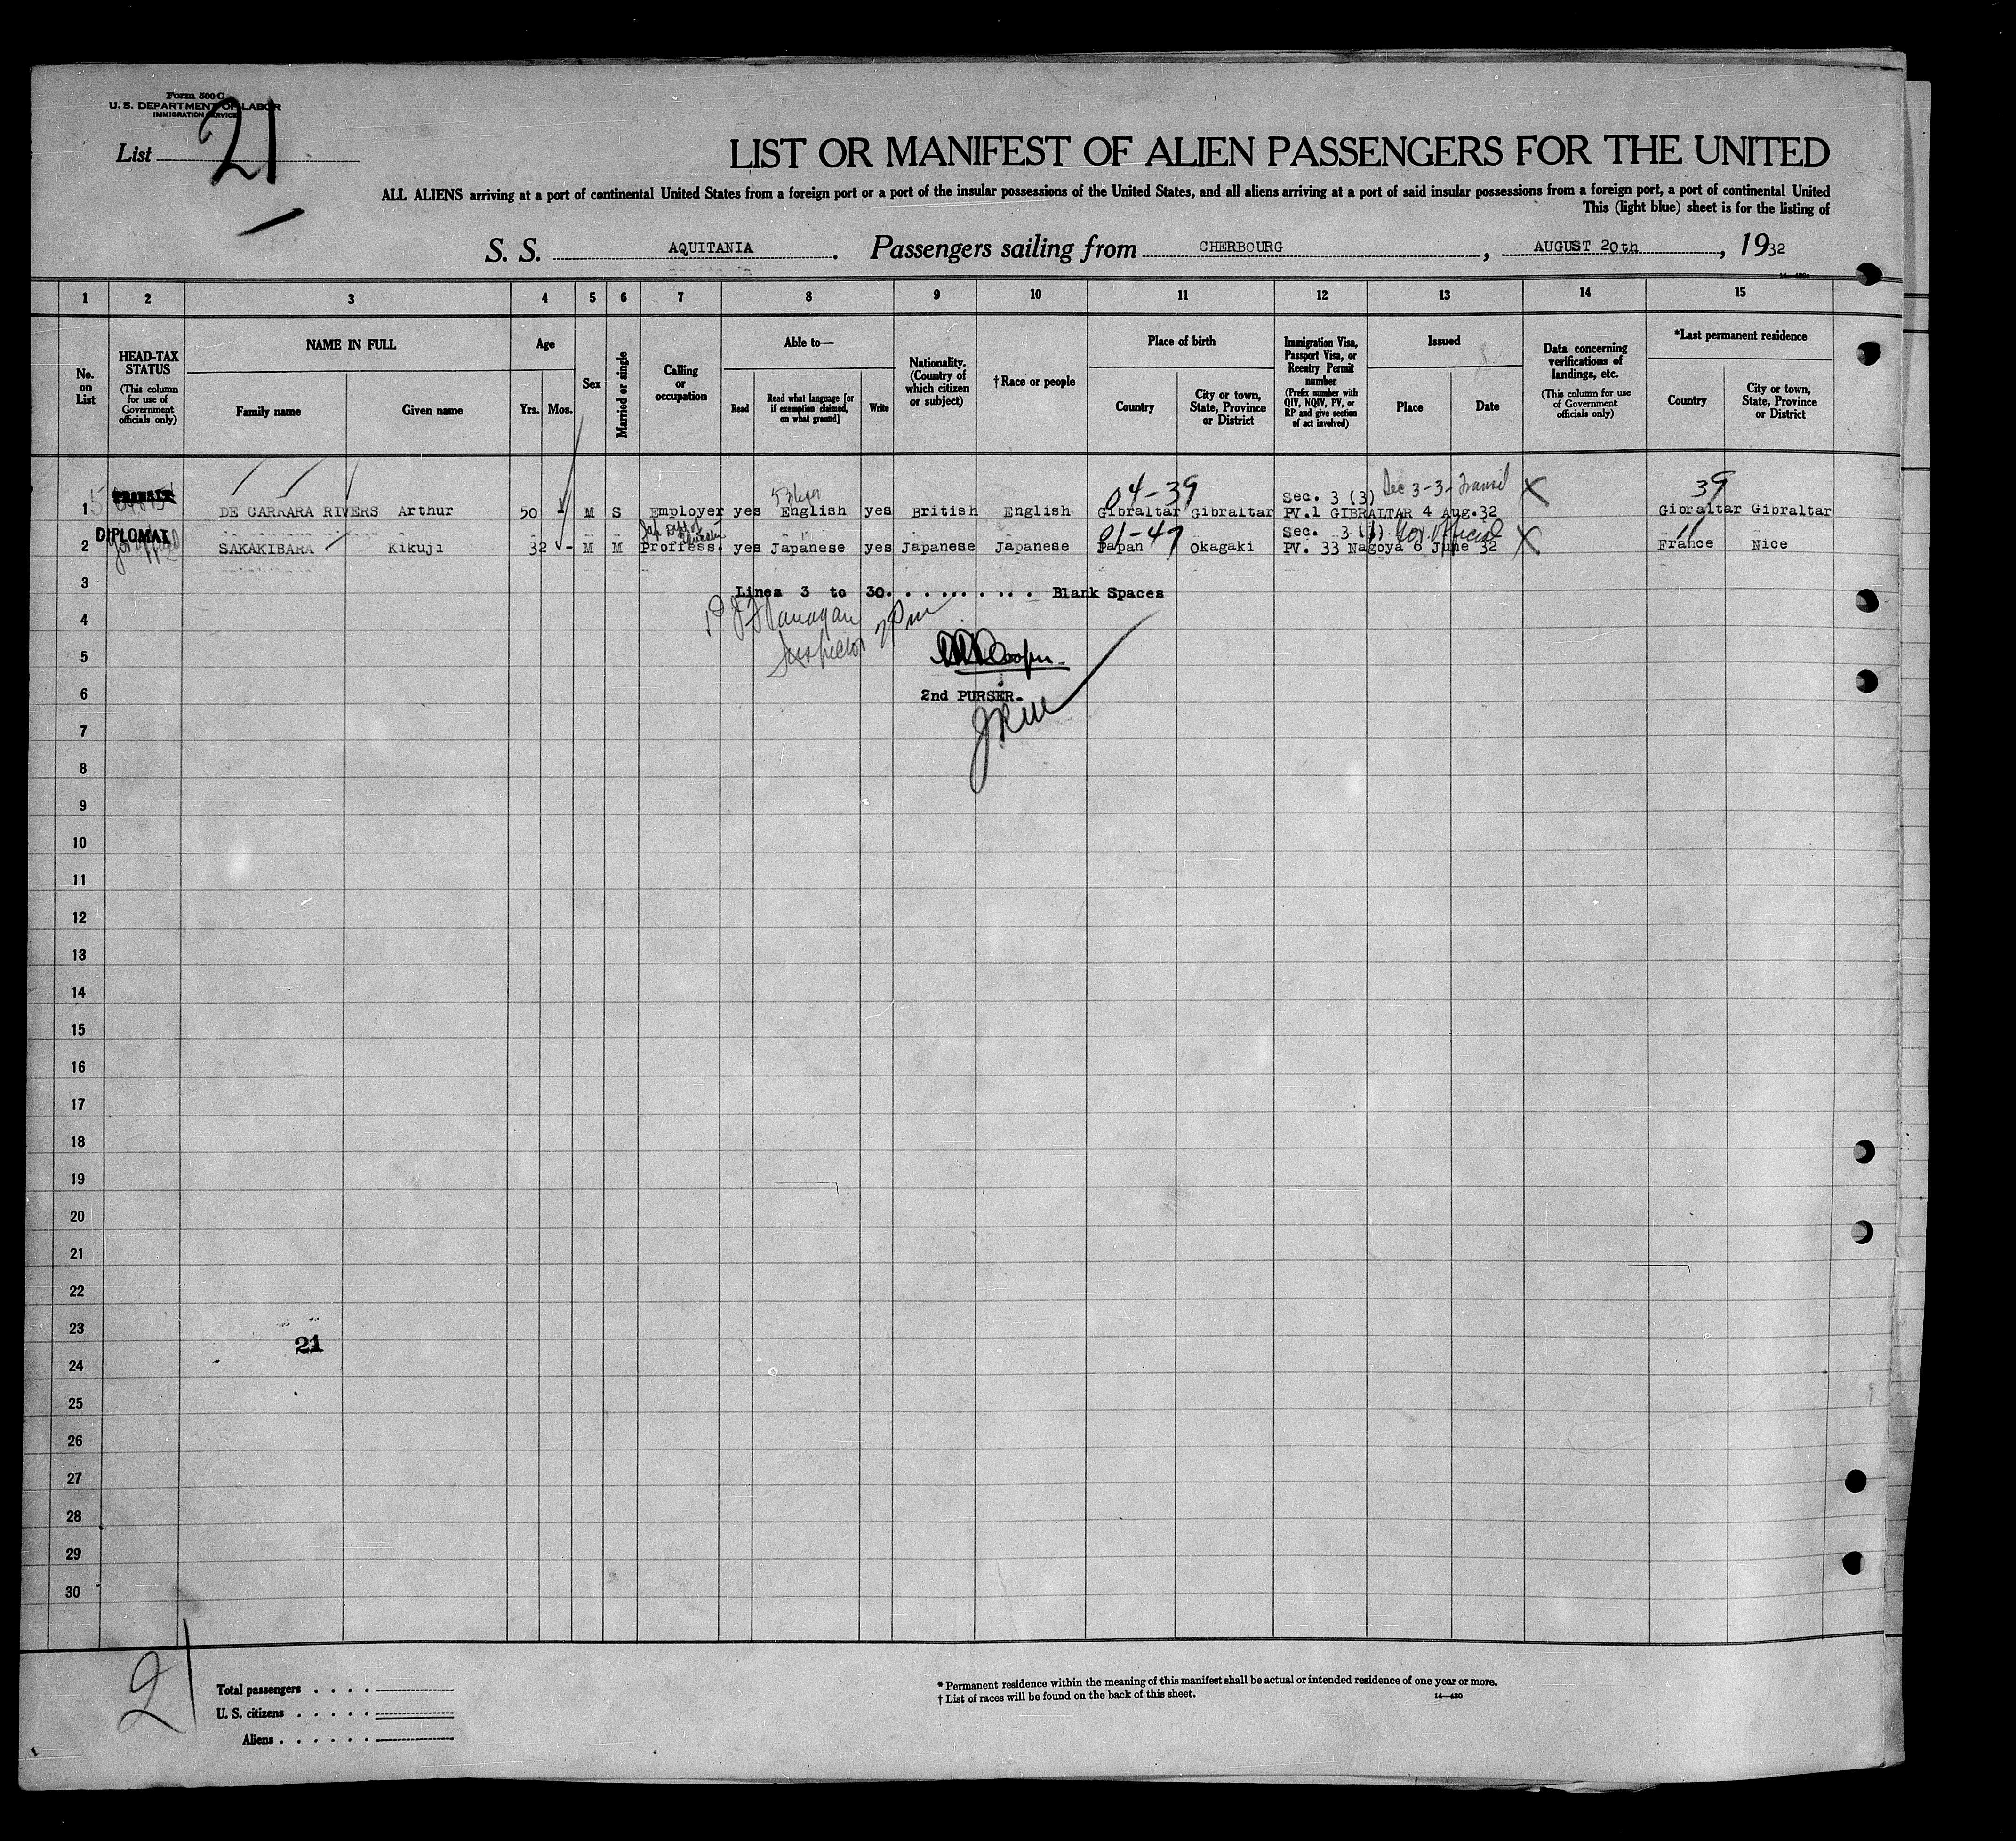 Form 500 C
U. S. DEPARTMENT OF LABOR
IMMIGRATION SERVICE
List 21
LIST OR MANIFEST OF ALIEN PASSENGERS FOR THE UNITED
ALL ALIENS arriving at a port of continental United States from a foreign port or a port of the insular possessions of the United States, and all aliens arriving at a port of said insular possessions from a foreign port, a port of continental United
This (light blue) sheet is for the listing of
S. S. AQUITANIA. Passengers sailing from CHERBOURG, AUGUST 20th, 1932
1 2 3 4 5 6 7 8 9 10 11 12 13 14 15
No. on List
HEAD-TAX STATUS (This column for use of Government officials only)
NAME IN FULL
Family name
Given name
Age
Yrs. Mos.
Sex
Married or single
Calling or occupation
Able to—
Read
Read what language [or if exemption claimed, on what ground]
Write
Nationality. (Country of which citizen or subject)
†Race or people
Place of birth
Country
City or town, State, Province or District
Immigration Visa, Passport Visa, or Reentry Permit number (Prefix number with QIV, NQIV, PV, or RP and give section of act involved)
Issued
Place
Date
Data concerning verifications of landings, etc. (This column for use of Government officials only)
*Last permanent residence
Country
City or town, State, Province or District
TRANSIT
04-39 Sec. 3 (3) Sec 3-3-Transit 39
1 DE CARRARA RIVERS Arthur 50 M S Employer yes English yes British English Gibraltar Gibraltar PV.1 GIBRALTAR 4 Aug.32 X Gibraltar Gibraltar
DIPLOMAT 01-47 Sec. 3 Gov. Official 11
2 SAKAKIBARA Kikuji 32 - M M Proffess. yes Japanese yes Japanese Japanese Japan Okagaki PV. 33 Nagoya 6 June 32 X France Nice
3 Lines 3 to 30. . . . . . . . . . Blank Spaces
4 P J Flanagan
5 Inspector
Cooper
6 2nd PURSER.
7
8
9
10
11
12
13
14
15
16
17
18
19
20
21
22
23
21
24
25
26
27
28
29
30
21
Total passengers . . . .
U. S. citizens . . . . .
Aliens . . . . . .
* Permanent residence within the meaning of this manifest shall be actual or intended residence of one year or more.
† List of races will be found on the back of this sheet. 14—430